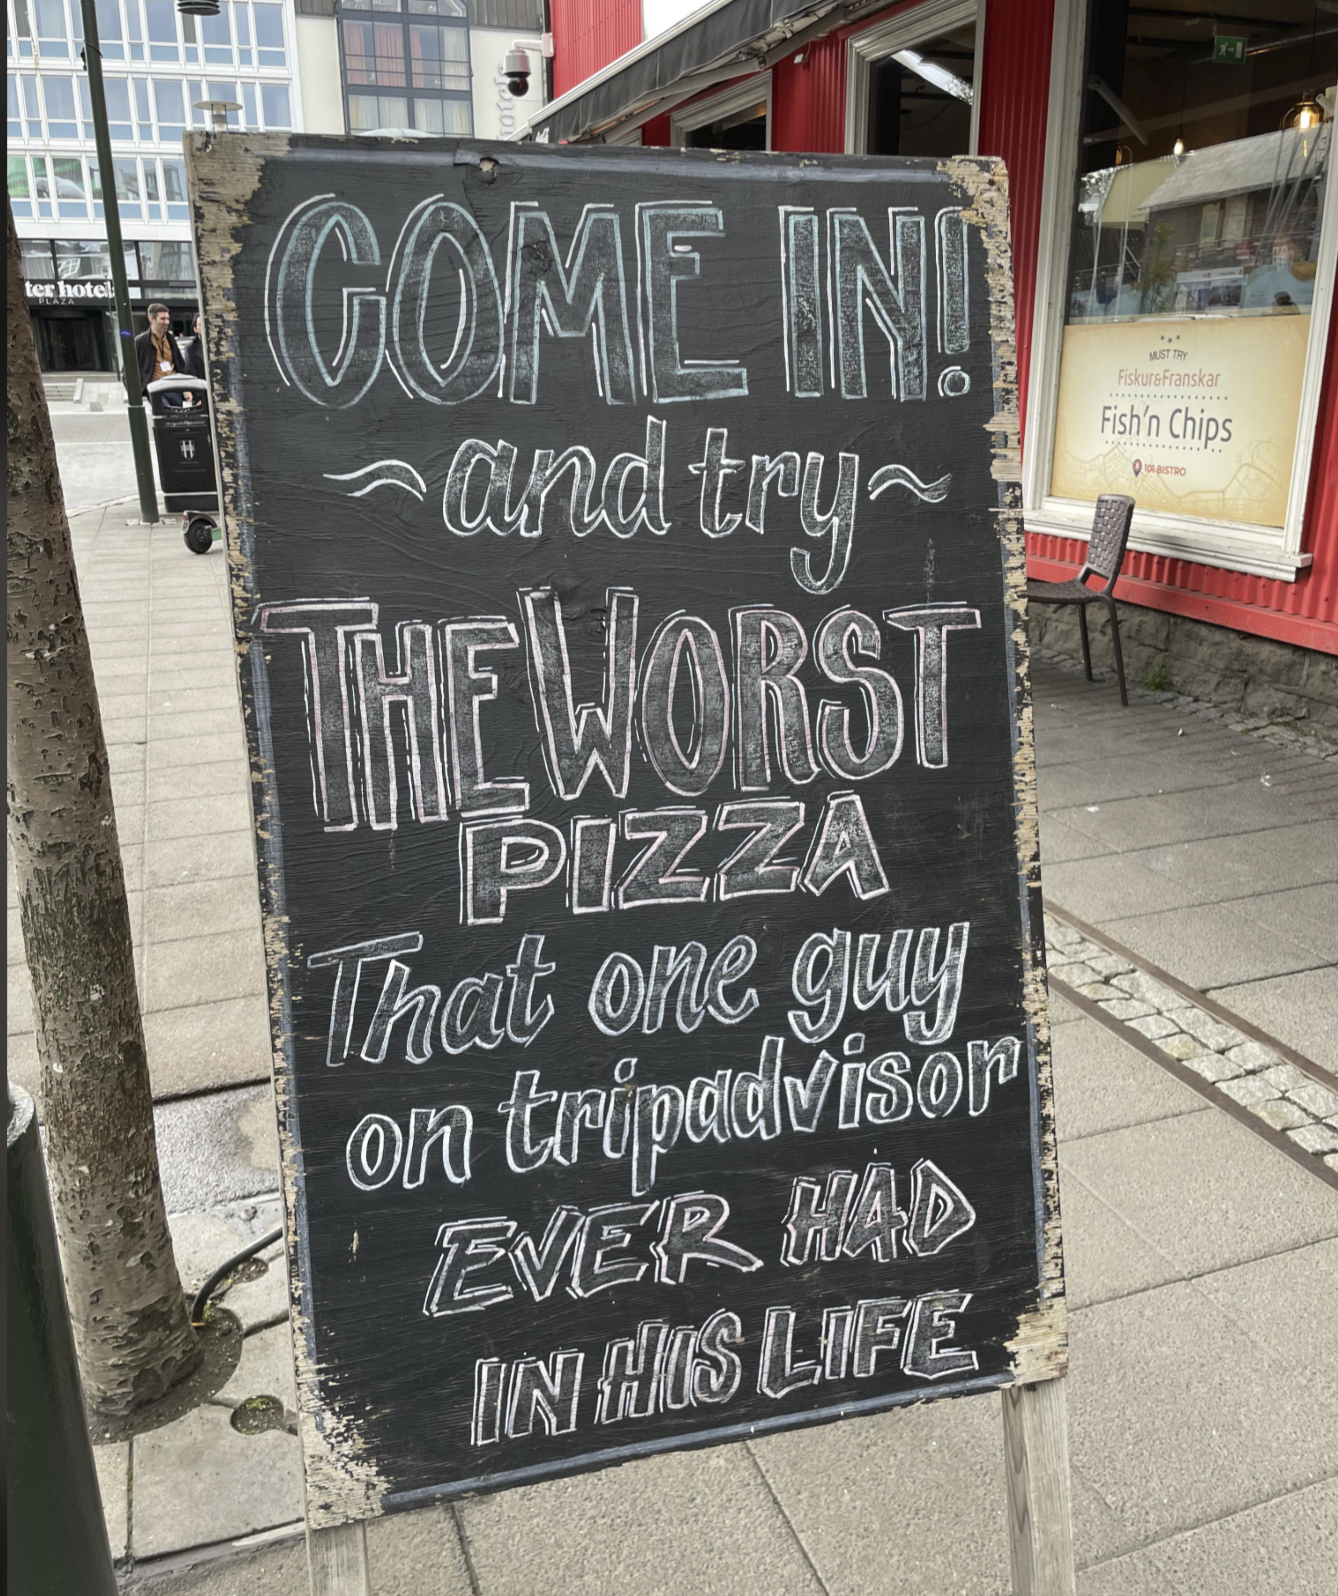 COME IN!
~and try~
THE WORST
PIZZA
That one guy
on tripadvisor
EVER HAD
IN HIS LIFE
MUST TRY
Fiskur&Franskar
Fish'n Chips
101 BISTRO
ter hotel
PLAZA
hotel